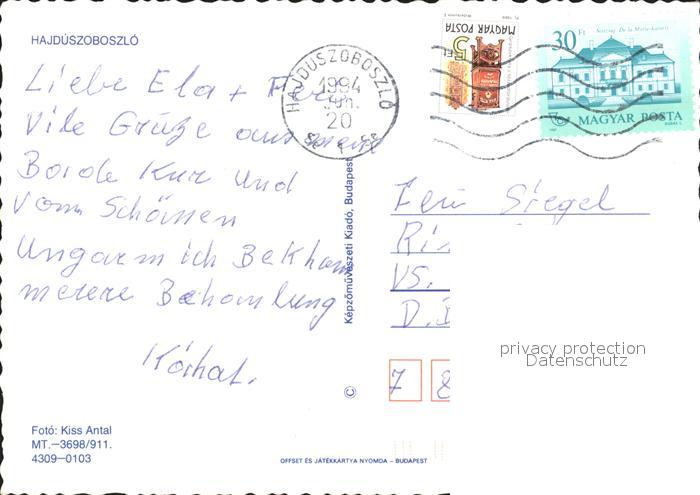 HAJDÚSZOBOSZLÓ
Liebe Ela + Feri
Vile Grüze aus meine
Bade Kur und
vom Schönen
Ungarn ich Bekham
merere Behamlung
Kórhat.
Fotó: Kiss Antal
MT.—3698/911.
4309—0103
HAJDÚSZOBOSZLÓ
1994
20
Képzőművészeti Kiadó, Budapest
©
OFFSET ÉS JÁTÉKKÁRTYA NYOMDA – BUDAPEST
MAGYAR POSTA
5 Ft
30 Ft
MAGYAR POSTA
Feri Siegel
VS.
7 8
privacy protection
Datenschutz